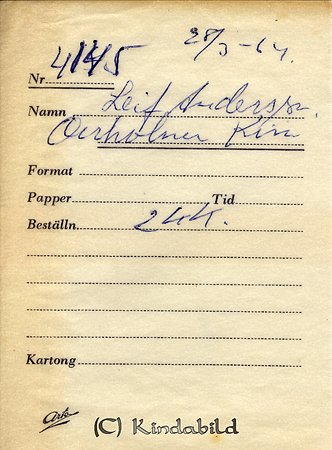 28/3-64.
Nr 4145
Namn Leif Andersson.
Kisa
Format
Papper Tid
Beställn 24k.
Kartong
Ark
(C) Kindabild